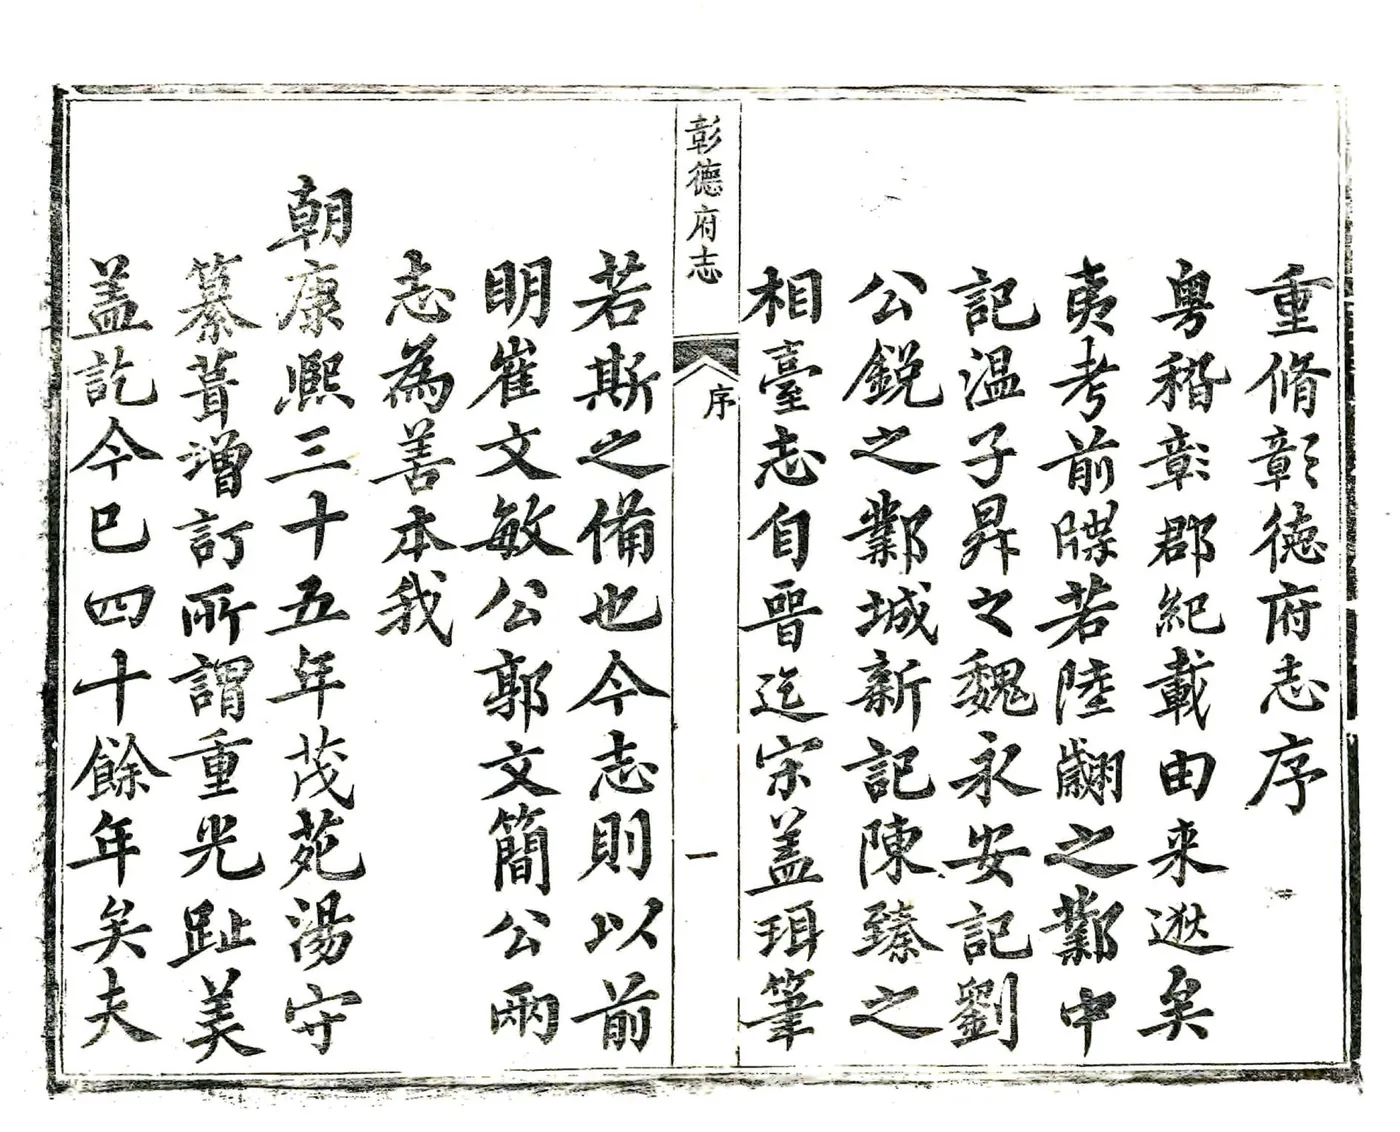 重脩彰德府志序
粵稽彰郡紀載由来逖矣
夷考前牒若陸翽之鄴中
記温子昇之魏永安記劉
公鋭之鄴城新記陳臻之
相臺志自晉迄宋盖珥筆
彰德府志
序
一
若斯之備也今志則以前
明崔文敏公郭文簡公兩
志為善本我
朝康熙三十五年茂苑湯守
纂葺增訂所謂重光趾美
盖訖今已四十餘年矣夫